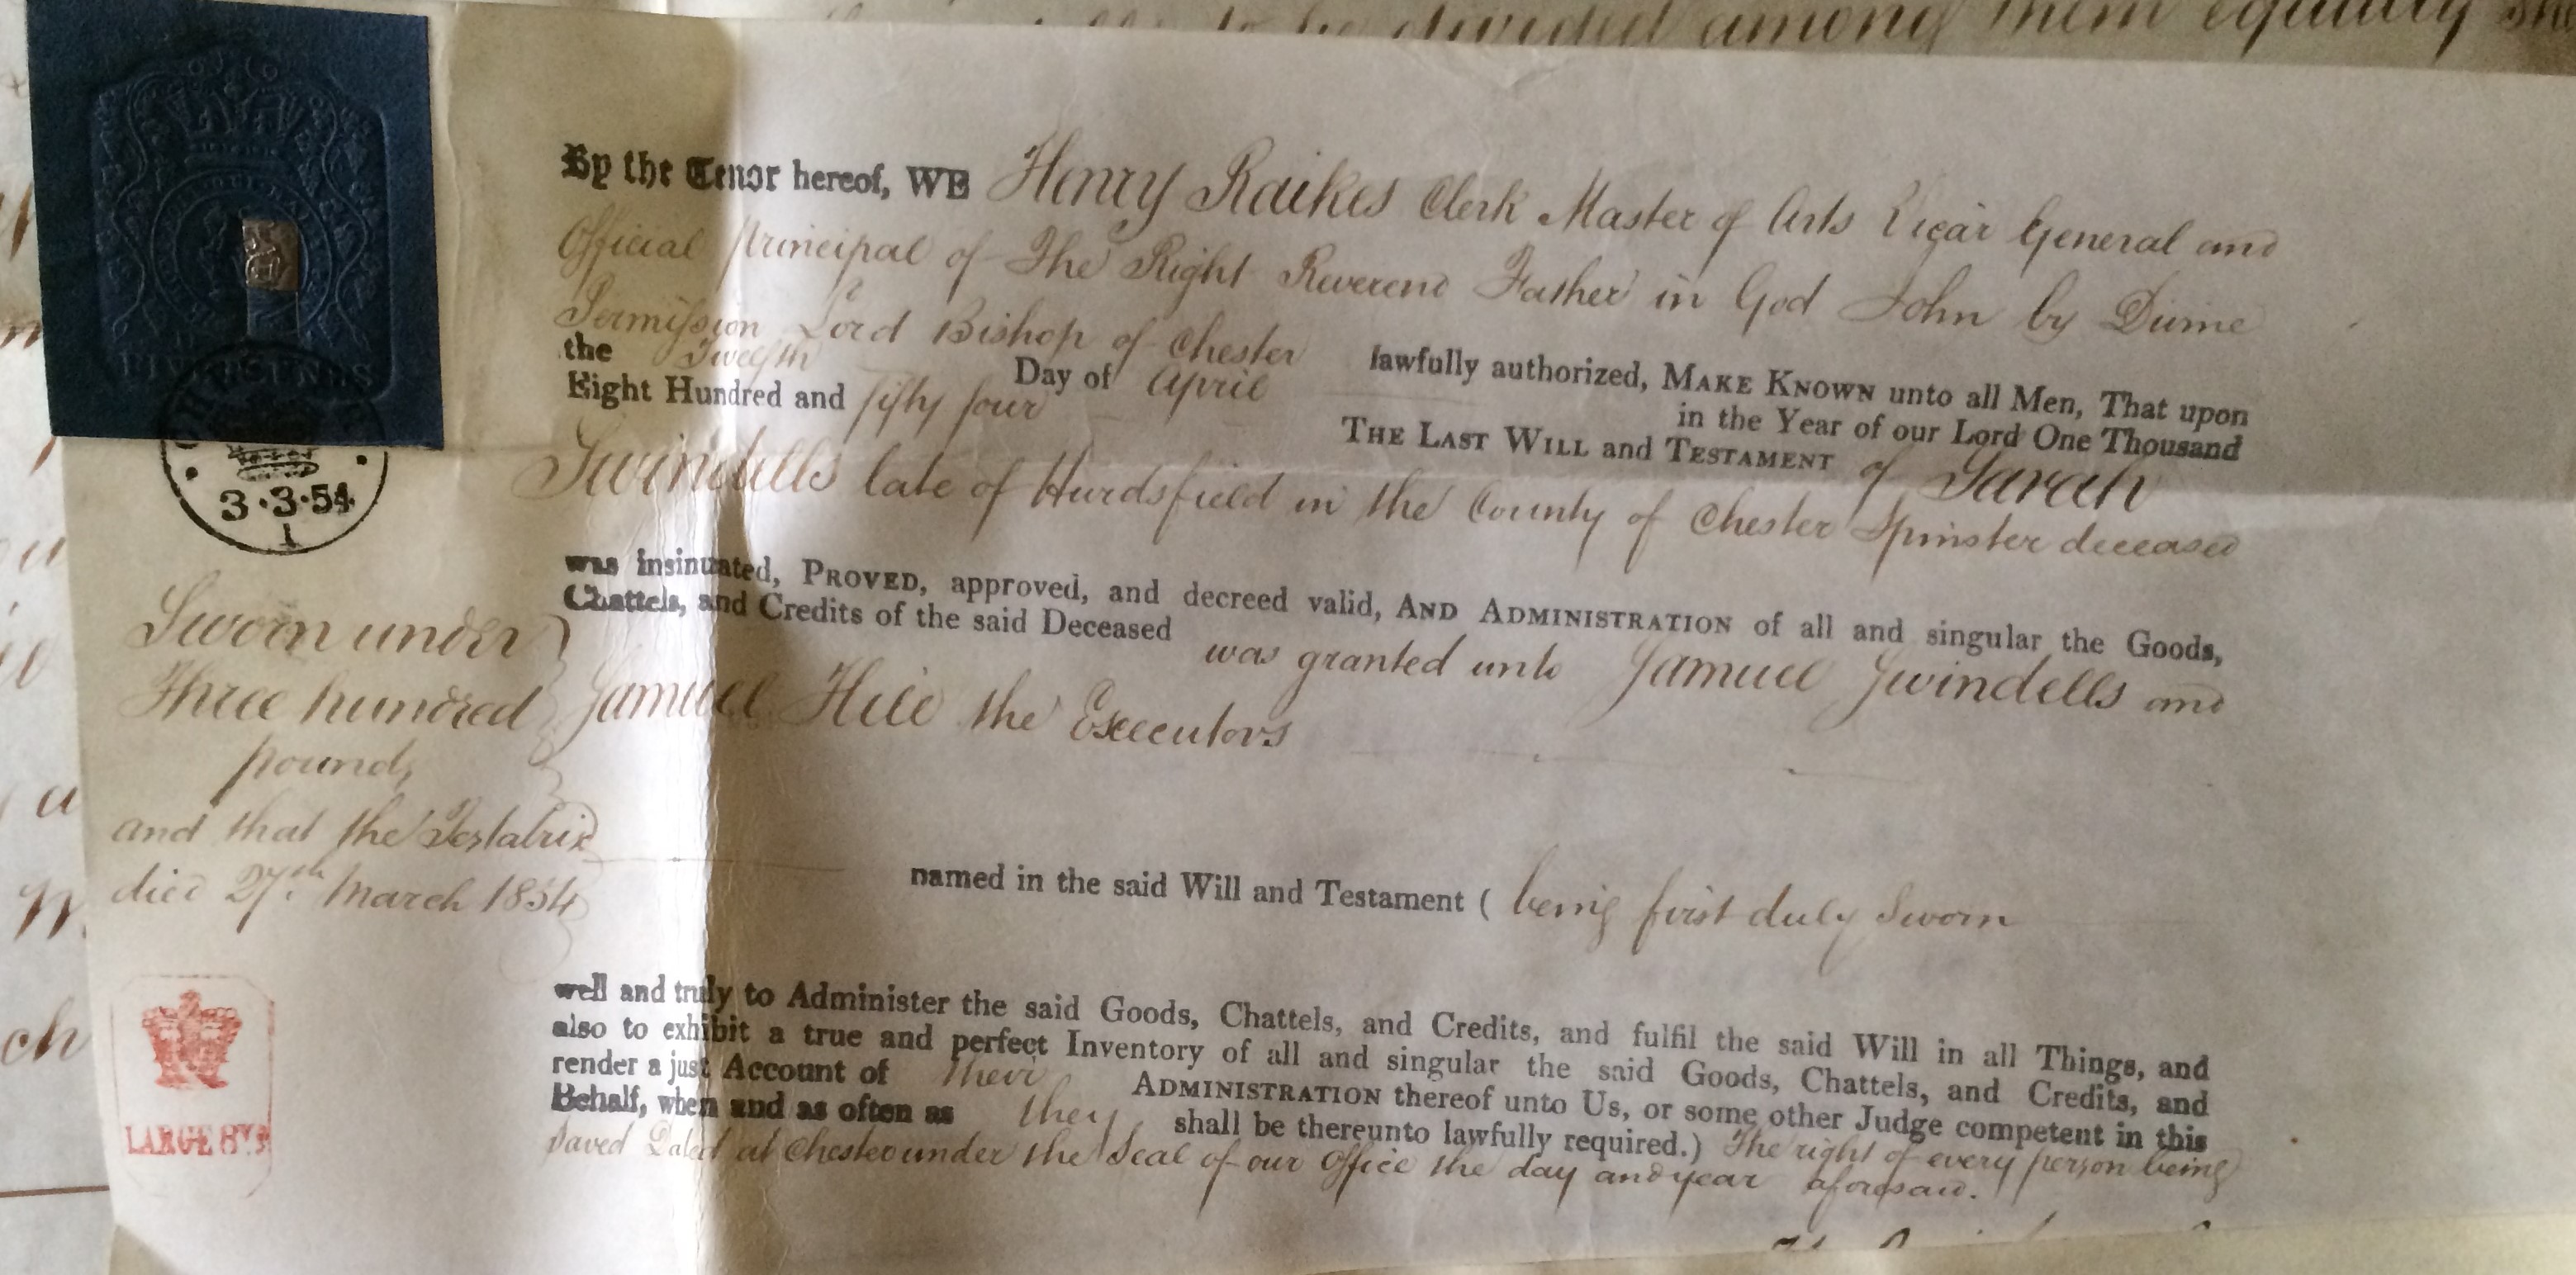 to be divided among them equally
By the Tenor hereof, WE Henry Raikes Clerk Master of Arts Vicar General and
Official Principal of The Right Reverend Father in God John by Divine
Permission Lord Bishop of Chester lawfully authorized, MAKE KNOWN unto all Men, That upon
the Twelfth Day of April in the Year of our Lord One Thousand
Eight Hundred and fifty four THE LAST WILL and TESTAMENT of Sarah
Swindells late of Hurdsfield in the County of Chester Spinster deceased
was insinuated, PROVED, approved, and decreed valid, AND ADMINISTRATION of all and singular the Goods,
Chattels, and Credits of the said Deceased was granted unto Samuel Swindells and
Samuel Hill the Executors
named in the said Will and Testament ( being first duly Sworn
well and truly to Administer the said Goods, Chattels, and Credits, and fulfil the said Will in all Things, and
also to exhibit a true and perfect Inventory of all and singular the said Goods, Chattels, and Credits, and
render a just Account of their ADMINISTRATION thereof unto Us, or some other Judge competent in this
Behalf, when and as often as they shall be thereunto lawfully required.) The right of every person being
saved Dated at Chester under the Seal of our Office the day and year aforesaid.
3·3·54
1
Sworn under
Three hundred
pounds
and that the Testatrix
died 27th March 1854
LARGE